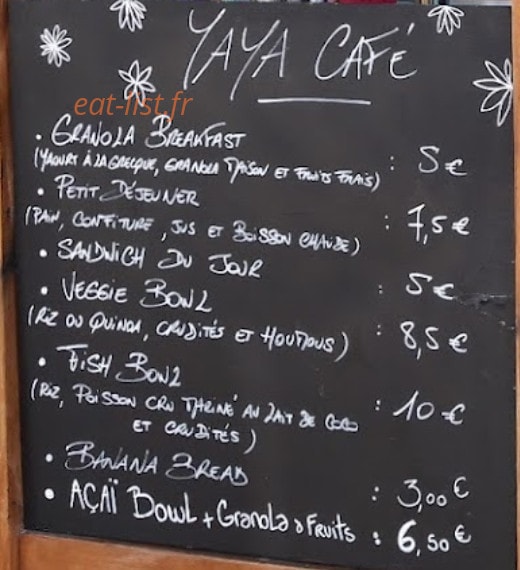 YAYA CAFÉ
eat-list.fr
• GRANOLA BREAKFAST
(YAOURT À LA GRECQUE, GRANOLA MAISON ET FRUITS FRAIS) : 5€
• PETIT DÉJEUNER
(PAIN, CONFITURE, JUS ET BOISSON CHAUDE) : 7,5€
• SANDWICH DU JOUR : 5€
• VEGGIE BOWL
(RIZ OU QUINOA, CRUDITÉS ET HOUMOUS) : 8,5€
• FISH BOWL
(RIZ, POISSON CRU MARINÉ AU LAIT DE COCO : 10€
ET CRUDITÉS)
• BANANA BREAD : 3,00€
• AÇAÏ BOWL + Granola & Fruits : 6,50€